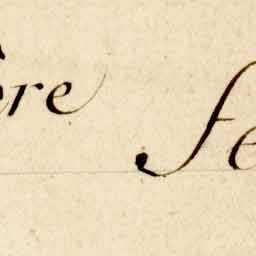 re fe